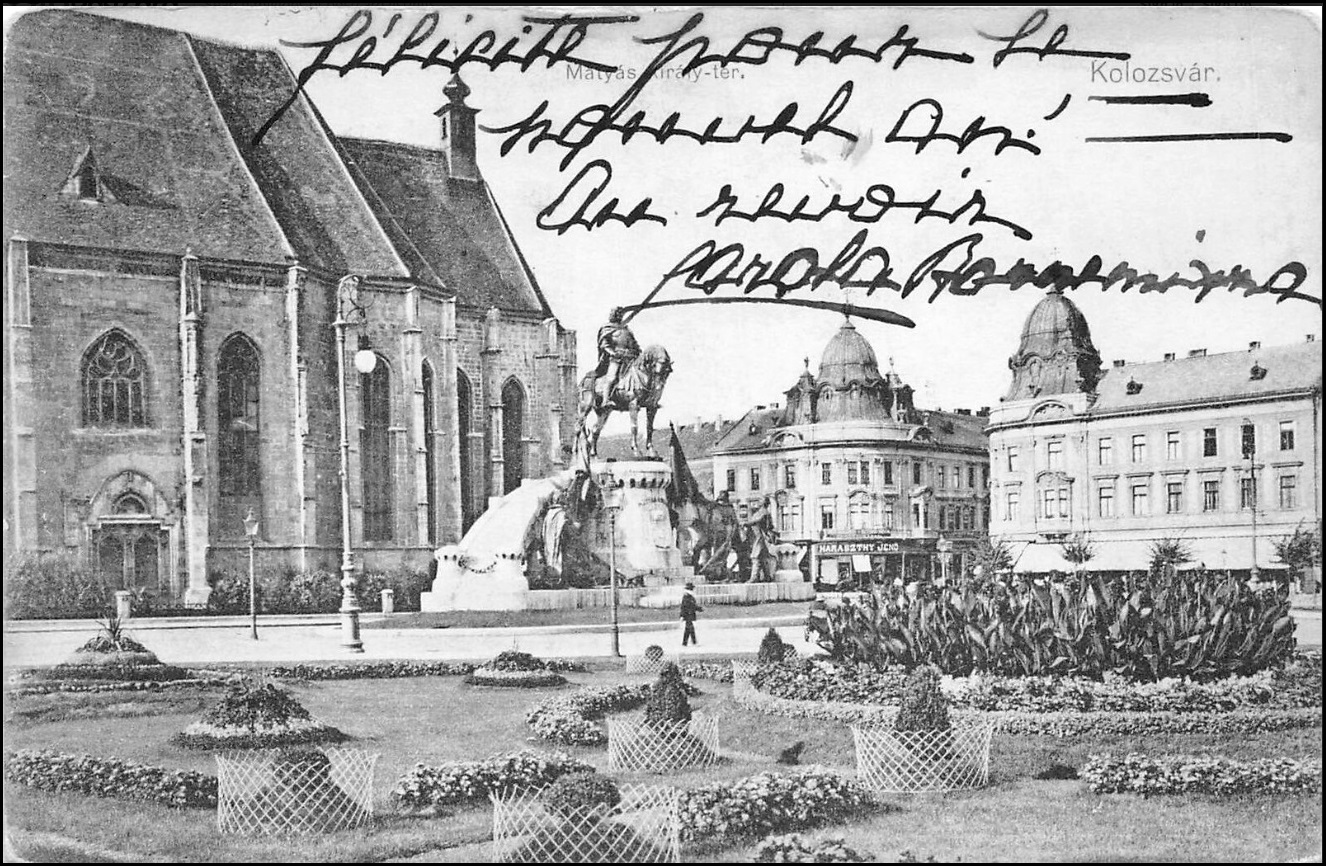 félicite pour le
Mátyás király-tér.
Kolozsvár.
nouvel an!
Au revoir
Carola
HARASZTHY JENŐ